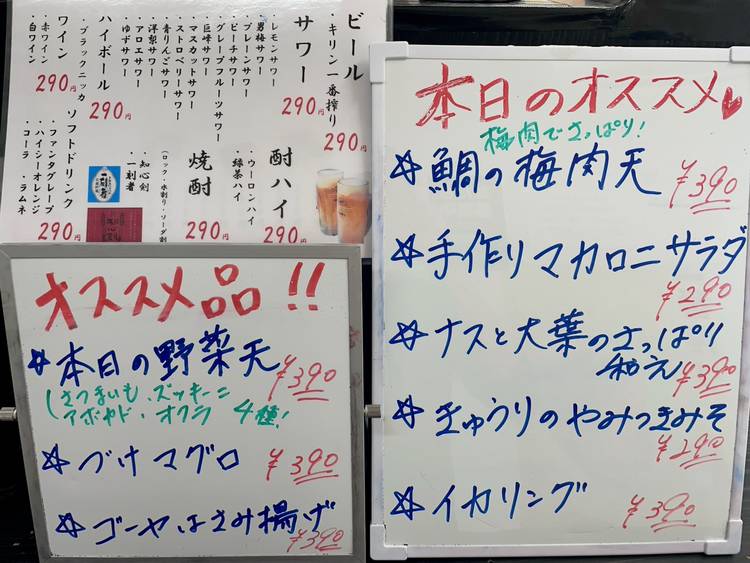 ビール
・キリン一番搾り
290円
サワー
・レモンサワー
・男梅サワー
・プレーンサワー
・ピーチサワー
・グレープフルーツサワー
・巨峰サワー
・マスカットサワー
・ストロベリーサワー
・青りんごサワー
・洋梨サワー
・アロエサワー
・ゆずサワー
290円
ハイボール
・ブラックニッカ
290円
ワイン
・赤ワイン
・白ワイン
290円
酎ハイ
・ウーロンハイ
・緑茶ハイ
290円
焼酎
(ロック・水割り・ソーダ割)
・知心剣
・一刻者
290円
ソフトドリンク
・ファンタグレープ
・ハイシーオレンジ
・コーラ ・ラムネ
290円
オススメ品!!
☆本日の野菜天 ¥390
さつまいも、ズッキーニ
アボカド・オクラ 4種!
☆づけマグロ ¥390
☆ゴーヤはさみ揚げ
¥390
本日のオススメ♥
梅肉でさっぱり!
☆鯛の梅肉天 ¥390
☆手作りマカロニサラダ
¥290
☆ナスと大葉のさっぱり
和え ¥390
☆きゅうりのやみつきみそ
¥290
☆イカリング ¥390